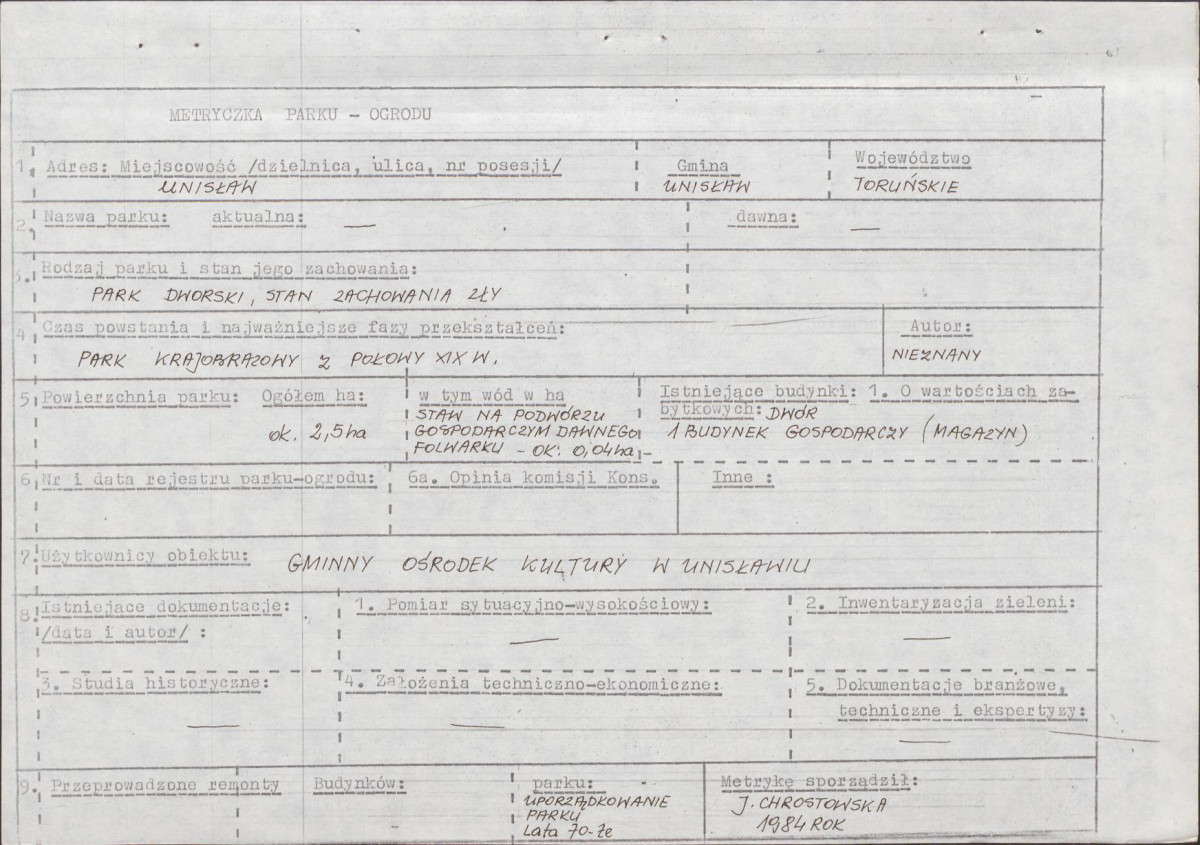 METRYCZKA PARKU - OGRODU
1. Adres: Miejscowość /dzielnica, ulica, nr posesji/
UNISŁAW
Gmina
UNISŁAW
Województwo
TORUŃSKIE
2. Nazwa parku: aktualna: —
dawna: —
3. Rodzaj parku i stan jego zachowania:
PARK DWORSKI, STAN ZACHOWANIA ZŁY
4 Czas powstania i najważniejsze fazy przekształceń:
PARK KRAJOBRAZOWY Z POŁOWY XIX W.
Autor:
NIEZNANY
5 Powierzchnia parku: Ogółem ha:
ok. 2,5 ha
w tym wód w ha
STAW NA PODWÓRZU
GOSPODARCZYM DAWNEGO
FOLWARKU - OK. 0,04 ha
Istniejące budynki: 1. O wartościach za-
bytkowych: DWÓR
1 BUDYNEK GOSPODARCZY (MAGAZYN)
6 Nr i data rejestru parku-ogrodu:
6a. Opinia komisji Kons.
Inne :
7. Użytkownicy obiektu: GMINNY OŚRODEK KULTURY W UNISŁAWIU
8. Istniejace dokumentacje:
/data i autor/ :
1. Pomiar sytuacyjno-wysokościowy:
—
2. Inwentaryzacja zieleni:
—
3. Studia historyczne:
—
4. Założenia techniczno-ekonomiczne:
—
5. Dokumentacje branżowe,
techniczne i ekspertyzy:
—
9. Przeprowadzone remonty
Budynków:
parku:
UPORZĄDKOWANIE
PARKU
Lata 70-te
Metrykę sporządził:
J. CHROSTOWSKA
1984 ROK